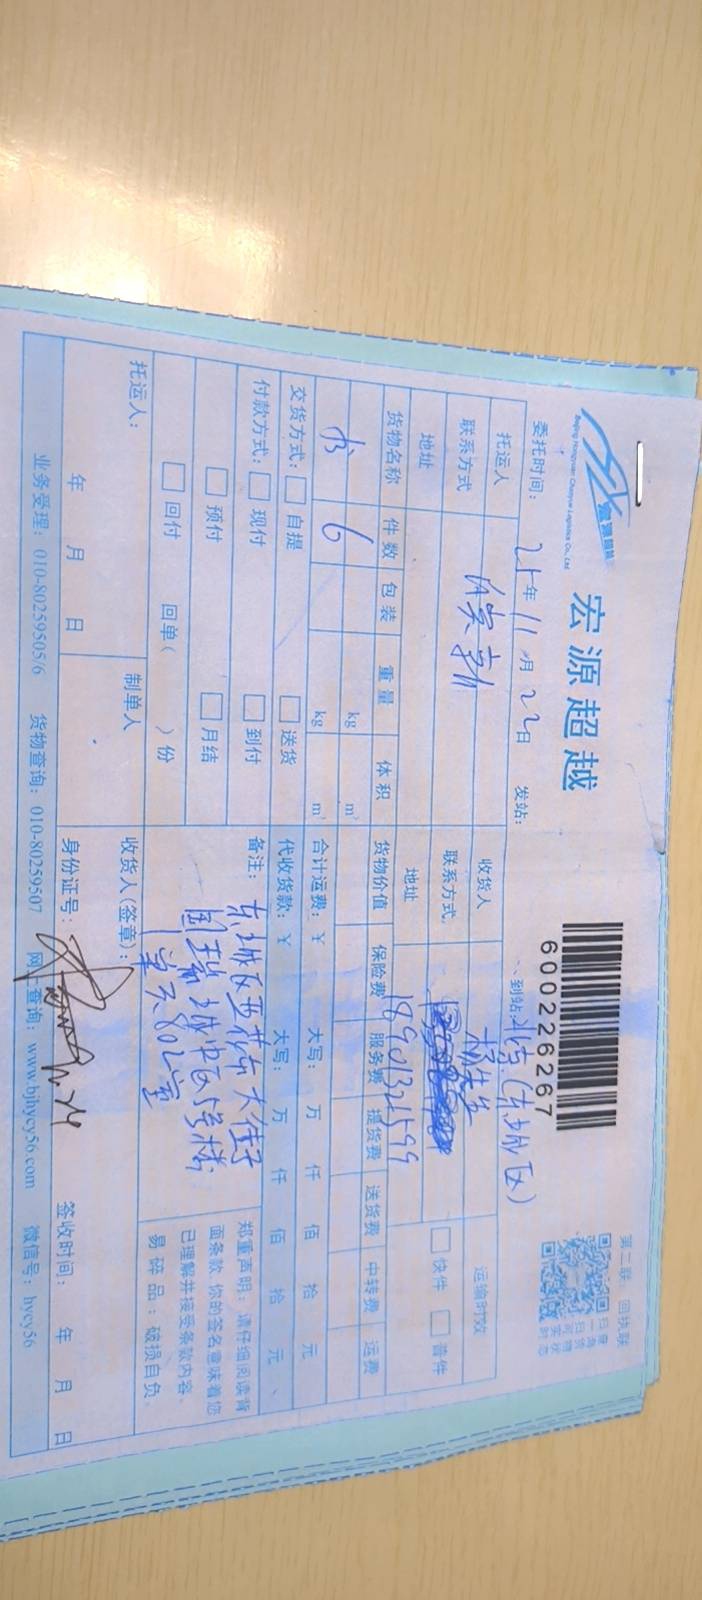 宏源超越
Beijing Hongyuan Chaoyue Logistics Co., Ltd
600226267
第二联：回执联
委托时间： 25年 11月 22日 发站： 到站：北京(东城区)
托运人 收货人 杨先生 运输时效
联系方式 联系方式 □快件 □普件
地址 地址 18901321599
货物名称 件数 包装 重量 体积 货物价值 保险费 服务费 提货费 送货费 中转费 运费
书 6 kg m³
kg m³ 合计运费：￥ 大写： 万 仟 佰 拾 元
交货方式：□自提 □送货 代收货款：￥ 大写： 万 仟 佰 拾 元
付款方式：□现付 □到付 备注： 东城区
□预付 □月结 国瑞城中区
□回付 回单( )份 802室
郑重声明：请仔细阅读背
面条款，你的签名意味着您
已理解并接受条款内容。
易碎品：破损自负。
托运人： 制单人 收货人(签章)：
年 月 日 身份证号： 签收时间： 年 月 日
业务受理：010-80259505/6 货物查询：010-80259507 网上查询：www.bjhycy56.com 微信号：hycy56